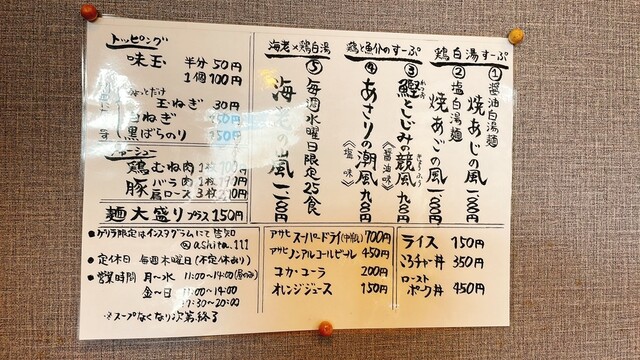 鶏白湯すーぷ
①醤油白湯麺
焼あじの風 一、000円
②塩白湯麺
焼あごの風 一、000円
鶏と魚介のすーぷ
③鰹としじみの競風 九00円
《醤油味》
④あさりの潮風 九00円
《塩味》
海老×鶏白湯
⑤毎週水曜日限定25食
海老の嵐 一、二00円
トッピング
味玉 半分 50円
1個 100円
玉ねぎ 30円
白ねぎ 150円
黒ばらのり 150円
チャーシュー
鶏むね肉 1枚 100円
豚 バラ肉 1枚
肩ロース 3枚
麺大盛り プラス 150円
●ゲリラ限定はインスタグラムにて告知
@ashita.111
●定休日 毎週木曜日(不定休あり)
●営業時間 月〜水 11:00〜14:00(昼のみ)
金〜日 11:00〜14:00
17:30〜20:00
※スープなくなり次第終了
アサヒ スーパードライ(中瓶) 700円
アサヒ ノンアルコールビール 450円
コカ・コーラ 200円
オレンジジュース 150円
ライス 150円
ころチャー丼 350円
ロースト
ポーク丼 450円